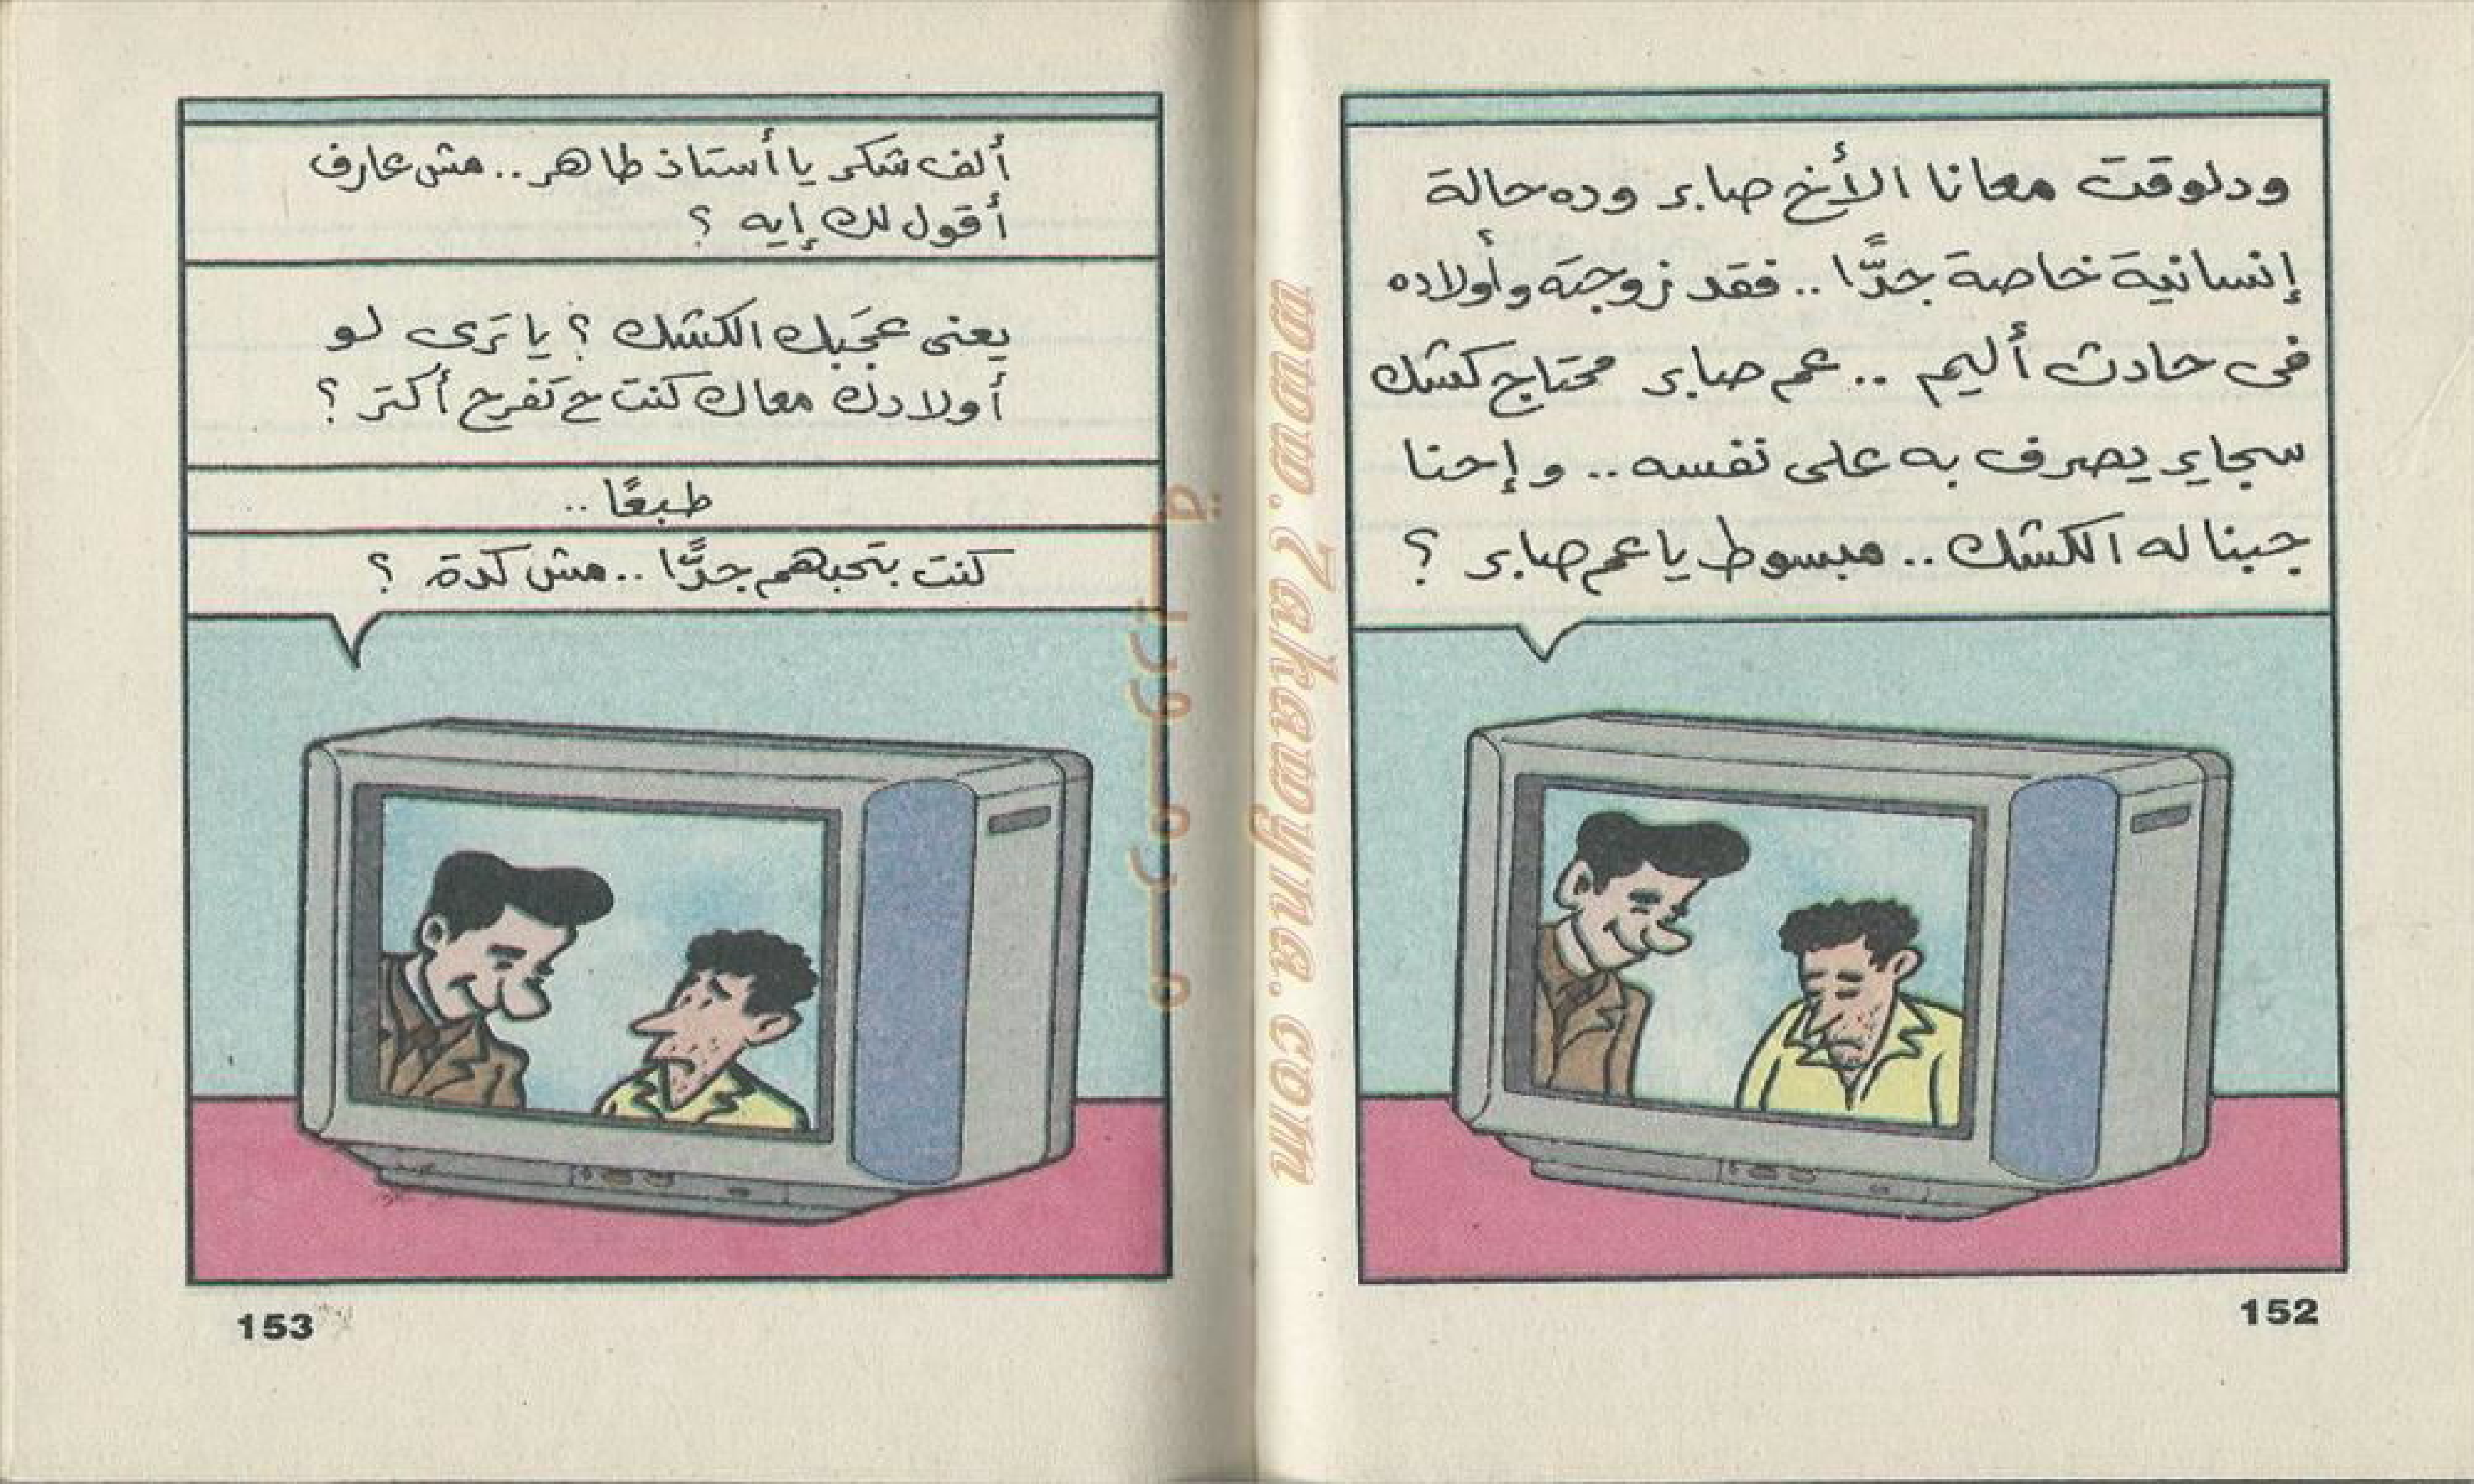 ودلوقت معانا الأخ صابر وده حالة
إنسانية خاصة جدًّا .. فقد زوجته وأولاده
فى حادث أليم .. عم صابر محتاج كشك
سجاير يصرف به على نفسه .. وإحنا
جبنا له الكشك .. مبسوط يا عم صابر ؟
152
ألف شكر يا أستاذ طاهر .. مش عارف
أقول لك إيه ؟
يعنى عجَبك الكشك ؟ يا تَرى لو
أولادك معاك كنت ح تفرح أكتر ؟
طبعًا ..
كنت بتحبهم جدًّا .. مش كدة ؟
153
www.Zakawyna.com